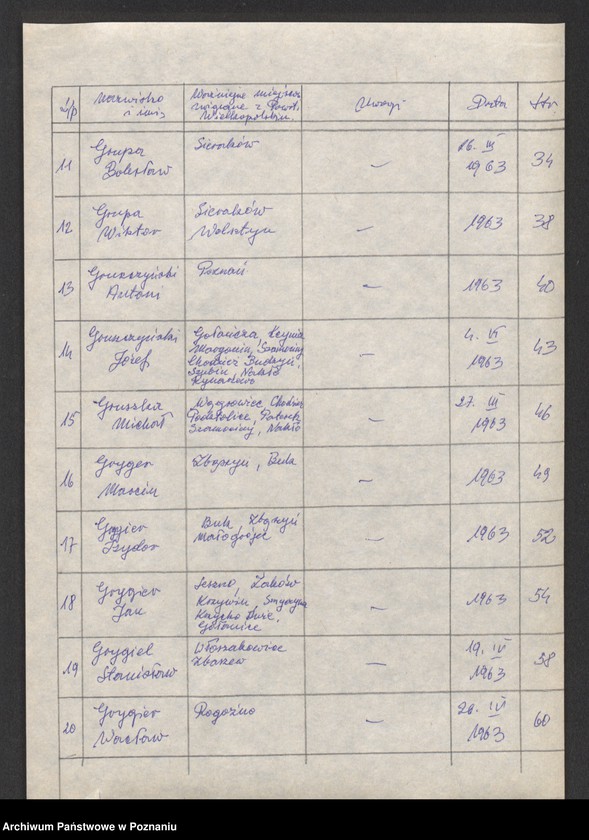 L/p Nazwisko i imię Ważniejsze miejsca związane z Powst. Wielkopolskim. Uwagi Data Str.
11 Grupa Bolesław Sieraków — 16. III 1963 34
12 Grupa Wiktor Sieraków Wolsztyn — 1963 38
13 Gruszczyński Antoni Poznań — 1963 40
14 Gruszczyński Józef Gołańcza, Kcynia Margonin, Szamocin Chodzież Budzyń, Szubin, Nakło Rynarzewo — 4. VI 1963 43
15 Gruszka Michał Wągrowiec, Chodzież Podstolice, Szamociny, Nakło — 27. III 1963 46
16 Gryger Marcin Zbąszyń, Buk — 1963 49
17 Izydor Buk, Zbąszyń — 1963 52
18 Grygier Jan Leszno, Żaków Krzywin, Kąycko Duże, Gołanice — 1963 54
19 Grygiel Stanisław Włoszakowice Zbarzew — 19. IV 1963 58
20 Grygier Wacław Rogoźno — 26. IVI 1963 60
Archiwum Państwowe w Poznaniu